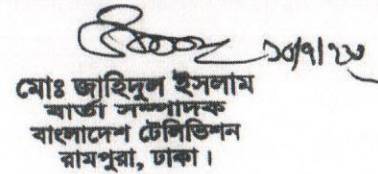 ১০/৭/২৩
মোঃ জাহিদুল ইসলাম
বার্তা সম্পাদক
বাংলাদেশ টেলিভিশন
রামপুরা, ঢাকা।